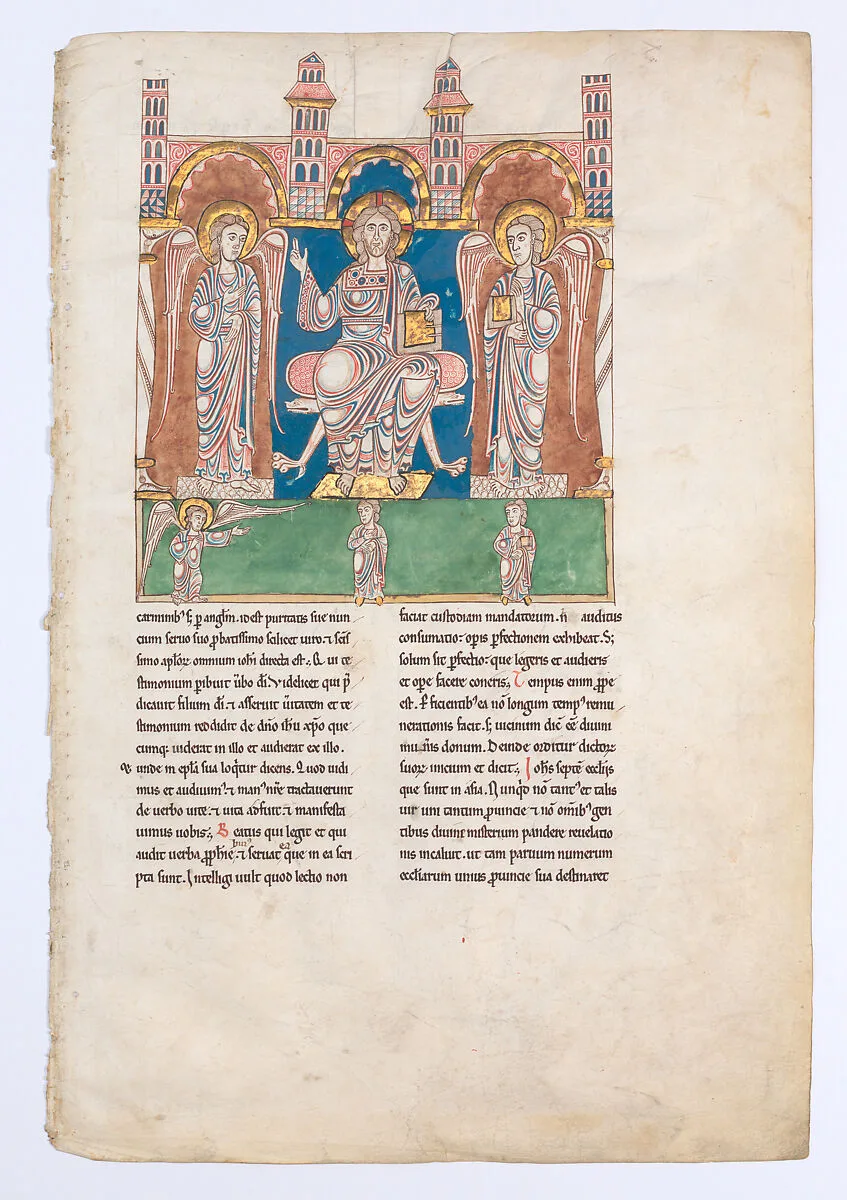 carminib⁹ s; p anglm. id est puritatis sue nun
cium seruo suo pbatissimo scilicet uiro ⁊ scis
simo aplor omnium iohi directa est; Qui te
stimonium pibuit ubo di. Videlicet qui p
dicauit filium di. ⁊ asseruit uitatem et te
stimonium reddidit de dno ihu xpo que
cumq; uiderat in illo et audierat ex illo.
unde in epla sua loqtur dicens. Quod uidi
mus et audiuim⁹ ⁊ man⁹ nre tractauerunt
de verbo uite ⁊ uita adfuit ⁊ manifesta
uimus uobis; Beatus qui legit et qui
audit uerba pphie ⁊ seruat ea que in ea scri
pta sunt. Intelligi uult quod lectio non
faciat custodiam mandatorum. n auditus
consumatio opis pfectionem exhibeat. S;
solum sit pfectio que legeris et audieris
et ope facere coneris; Tempus enim ppe
est. Pficientib⁹ ea no longum temp⁹ remu
nerationis facit. s; uicinum dic ee diuini
munis donum. Deinde orditur dictor
suor inicium et dicit; Johs septe ecclis
que sunt in asia. Nunqd no tant⁹ et talis
uir uni tantum puincie ⁊ no omib⁹ gen
tibus diuini misterium pandere reuelatio
nis incaluit. ut tam paruum numerum
eccliarum unius puincie sua destinaret